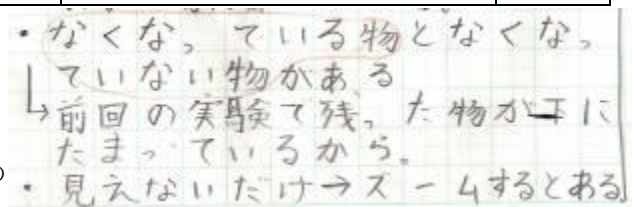 ・なくなっている物となくなっ
ていない物がある
↳前回の実験で残った物が下に
たまっているから。
・見えないだけ→ズームするとある